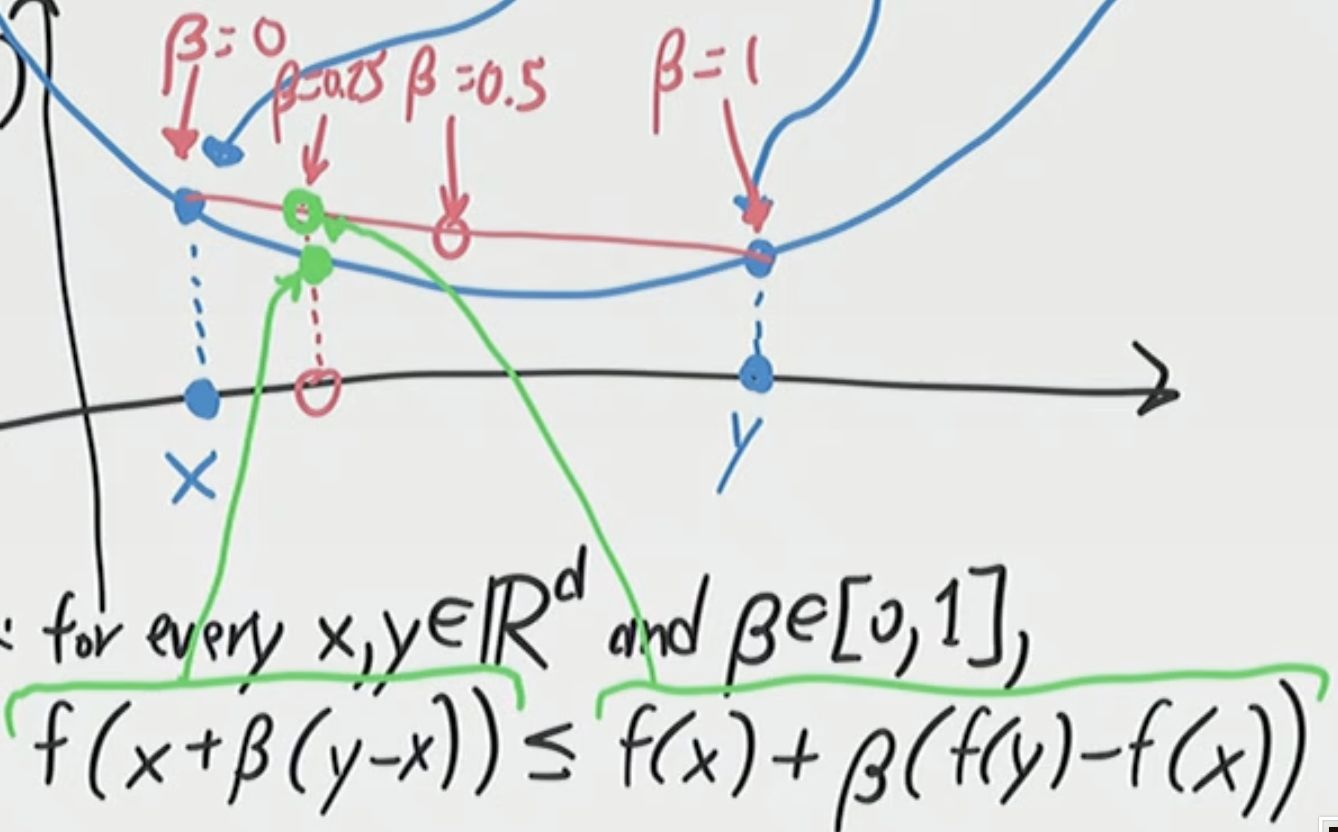 )
β=0
β=0.25
β=0.5
β=1
x
y
: for every x,y∈ℝᵈ and β∈[0,1],
f(x+β(y-x)) ≤ f(x)+β(f(y)-f(x))